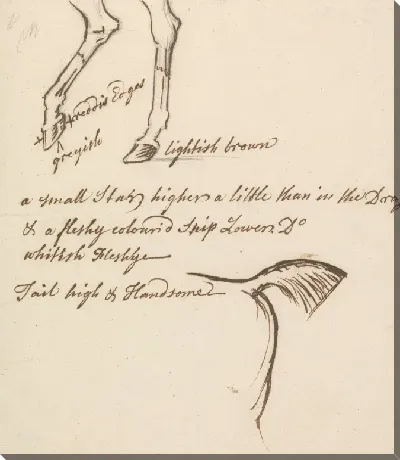 reddis Edges
greyish
lightish brown
a small Star higher a little than in the
& a fleshy colourid Snip Lower Do
whitish Fleshye
Tail high & Handsome